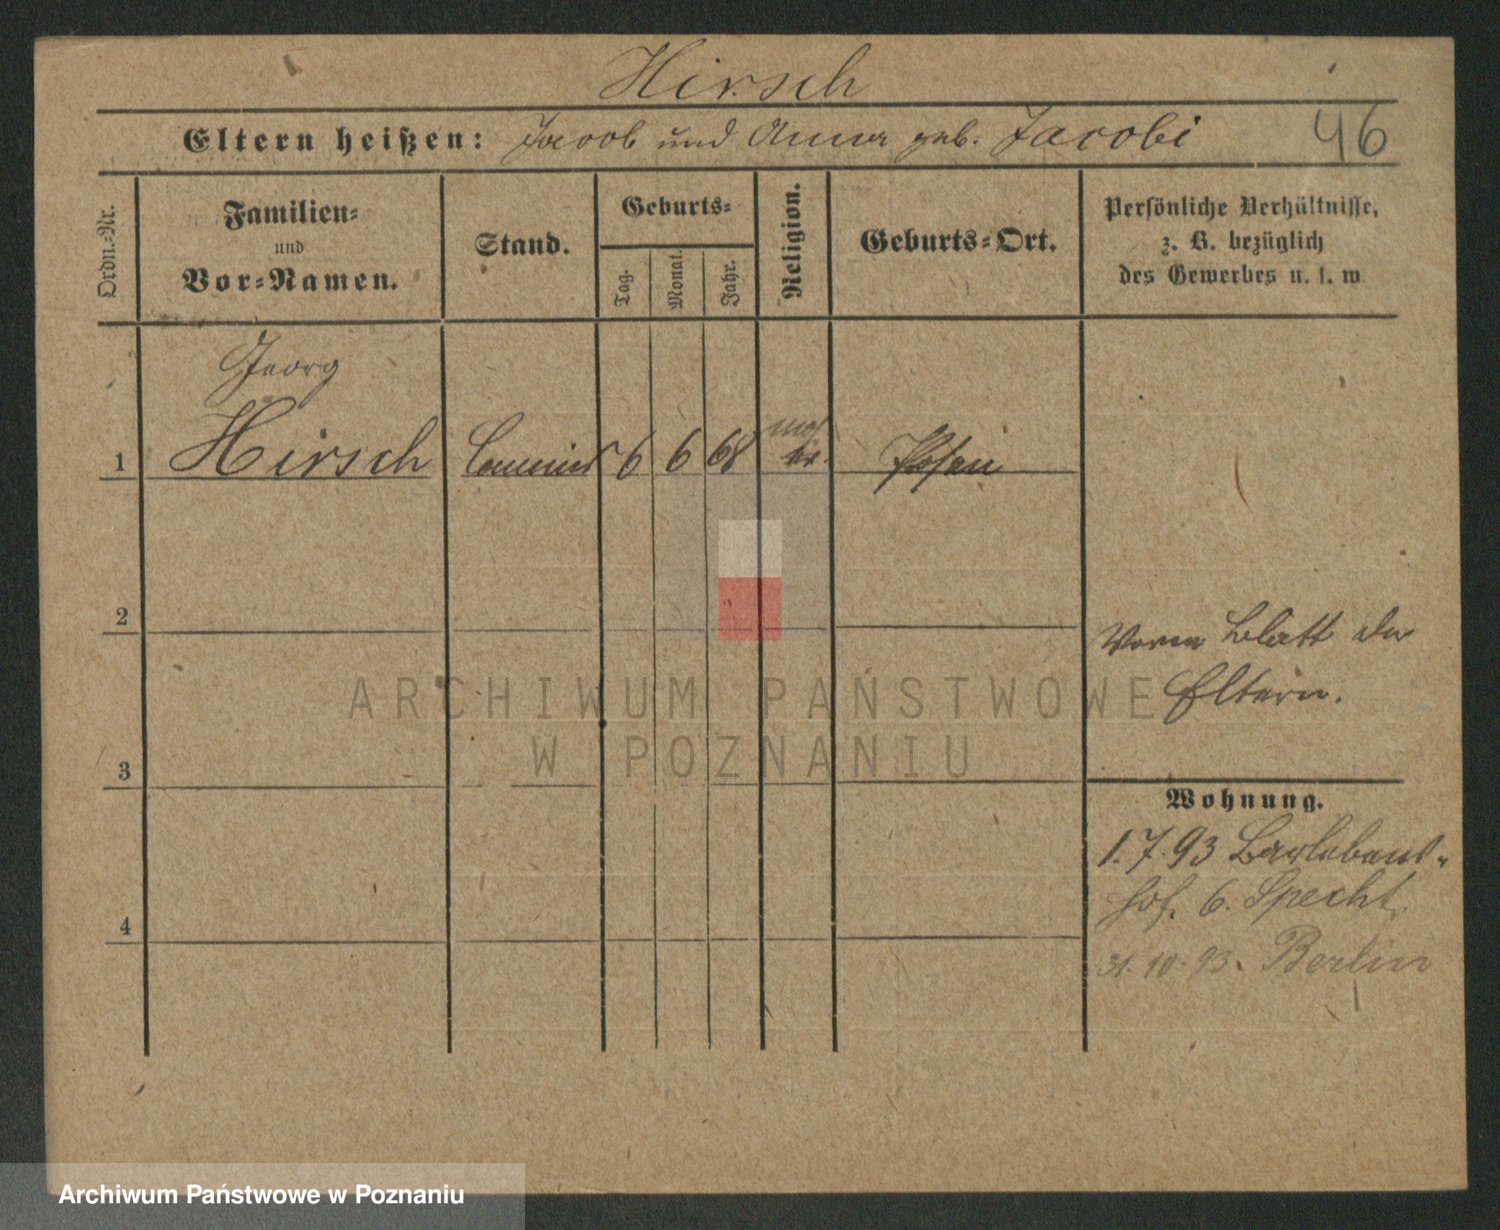 Hirsch
Eltern heißen: Jacob und Anna geb. Jacobi
46
Ordn.-Nr.
Familien-
und
Vor-Namen.
Stand.
Geburts-
Tag.
Monat.
Jahr.
Religion.
Geburts-Ort.
Persönliche Verhältnisse,
z. B. bezüglich
des Gewerbes u. s. w.
Georg
1 Hirsch Commis 6 6 68 Posen
2
3
4
Blatt der
Eltern.
Wohnung.
1.7.93
hof. 6. Specht.
31.10.93. Berlin
ARCHIWUM PAŃSTWOWE
W POZNANIU
Archiwum Państwowe w Poznaniu